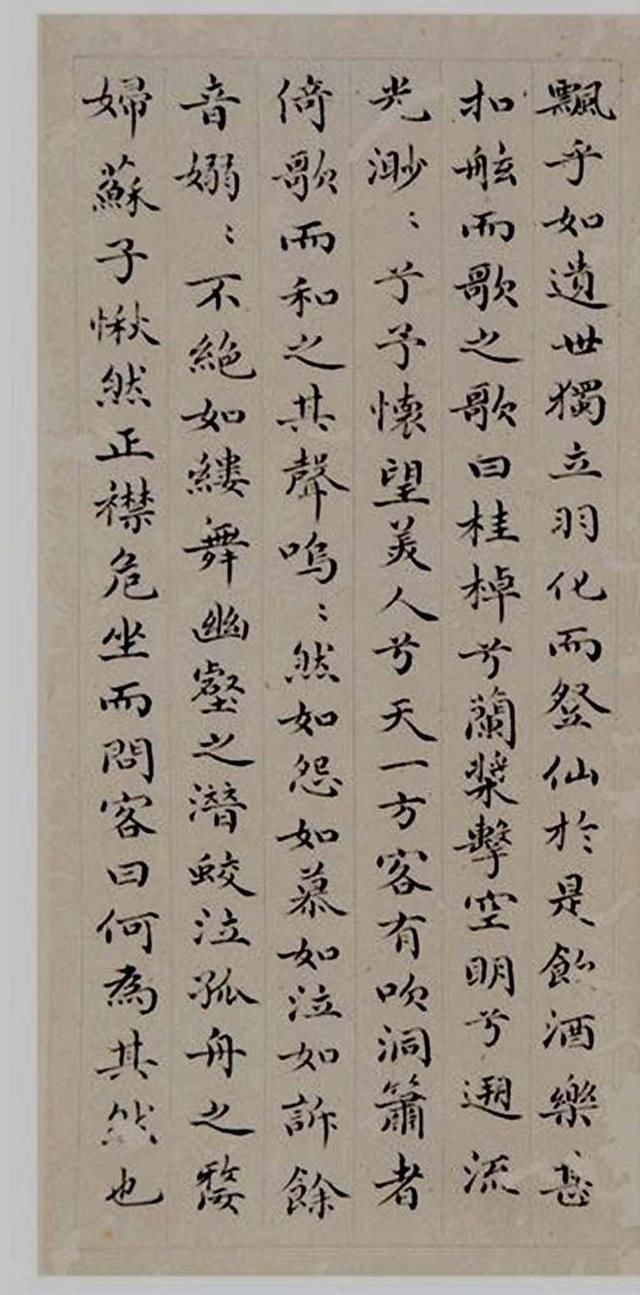 飄乎如遺世獨立羽化而登仙於是飲酒樂甚
扣舷而歌之歌曰桂棹兮蘭槳擊空明兮遡流
光渺〻兮予懷望美人兮天一方客有吹洞簫者
倚歌而和之其聲嗚〻然如怨如慕如泣如訴餘
音嫋〻不絕如縷舞幽壑之潛蛟泣孤舟之嫠
婦蘇子愀然正襟危坐而問客曰何為其然也